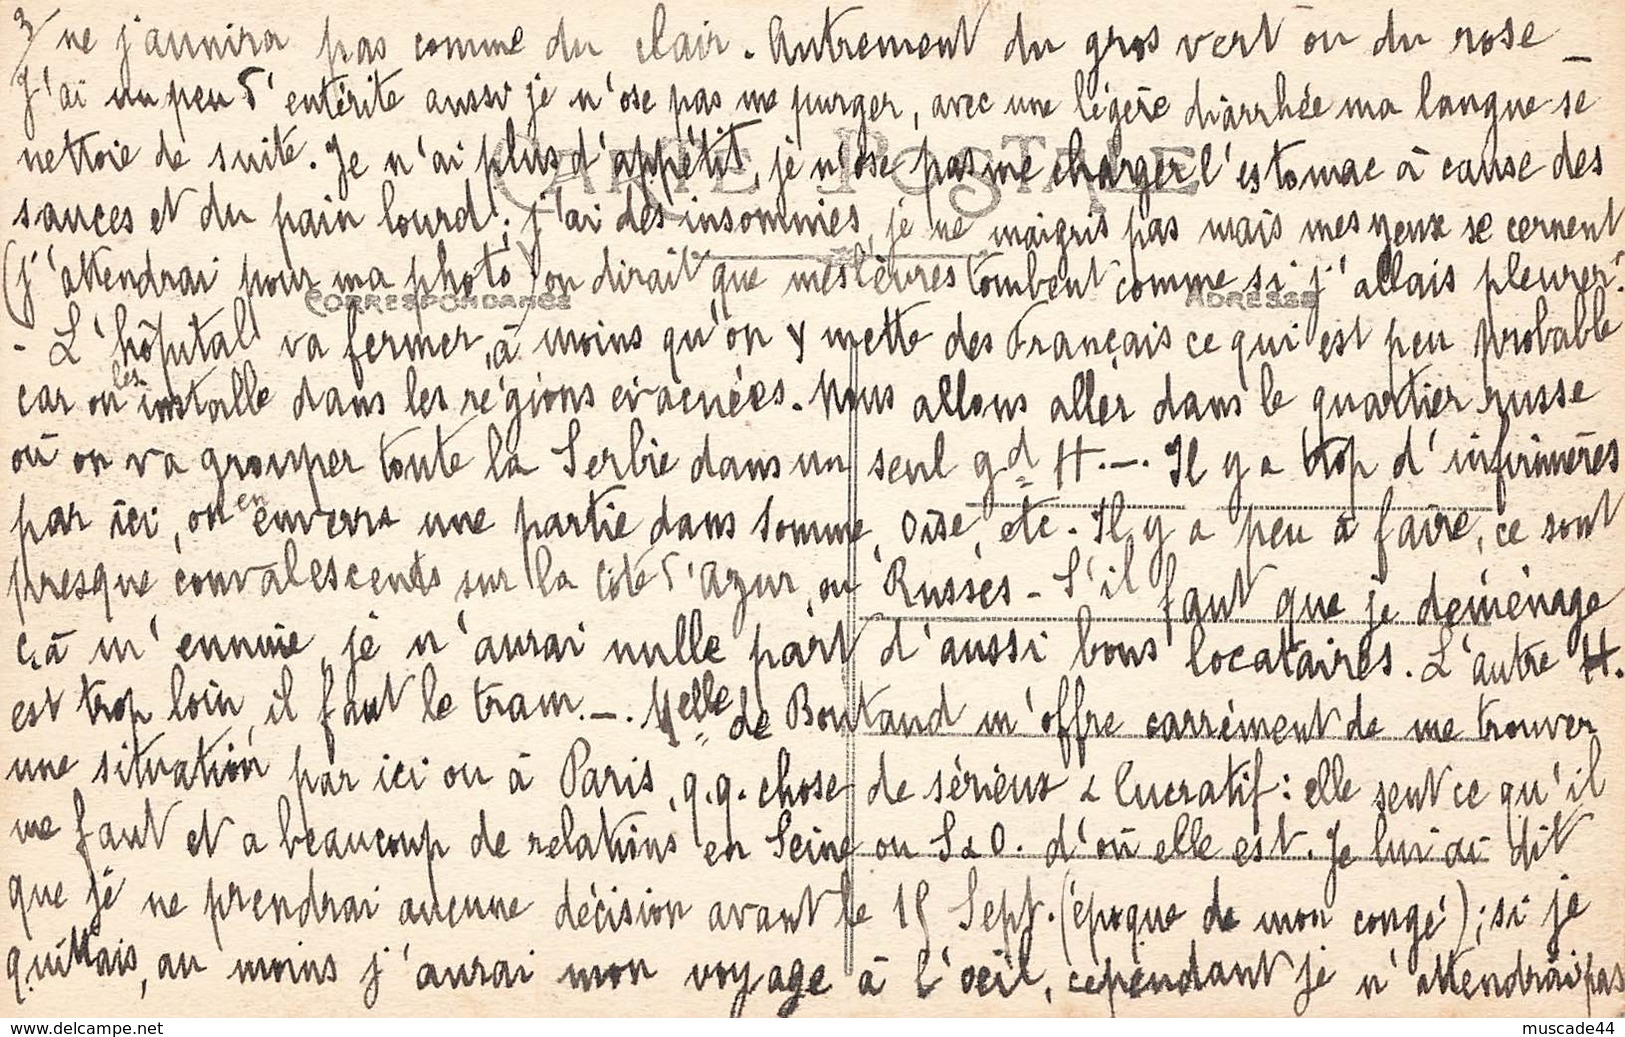 3/ ne jaunira pas comme du clair. Autrement du gros vert ou du rose _
J'ai un peu d'entérite aussi je n'ose pas me purger, avec une légère diarrhée ma langue se
nettoie de suite. Je n'ai plus d'appétit, je n'ose pas me charger l'estomac à cause des
CARTE POSTALE
sauces et du pain lourd; j'ai des insomnies, je ne maigris pas mais mes yeux se cernent
(j'attendrai pour ma photo) on dirait que mes lèvres tombent comme si j'allais pleurer.
CORRESPONDANCE ADRESSE
- L'hôpital va fermer, à moins qu'on y mette des Français ce qui est peu probable
car on les installe dans les régions évacuées. Nous allons aller dans le quartier russe
où on va grouper toute la Serbie dans un seul gd H. _ . Il y a trop d'infirmières
par ici, on en enverra une partie dans Somme, Oise, etc. Il y a peu à faire, ce sont
presque convalescents sur la Côte d'Azur, ou Russes - S'il faut que je déménage
çà m'ennuie, je n'aurai nulle part d'aussi bons locataires. L'autre H.
est trop loin, il faut le tram. _ . Melle de Boutaud m'offre carrément de me trouver
une situation par ici ou à Paris, q.q. chose de sérieux & lucratif: elle sent ce qu'il
me faut et a beaucoup de relations en Seine ou S & O. d'où elle est. Je lui ai dit
que je ne prendrai aucune décision avant le 15 Sept. (époque de mon congé); si je
quittais, au moins j'aurai mon voyage à l'oeil, cependant je n'attendrai pas
www.delcampe.net muscade44